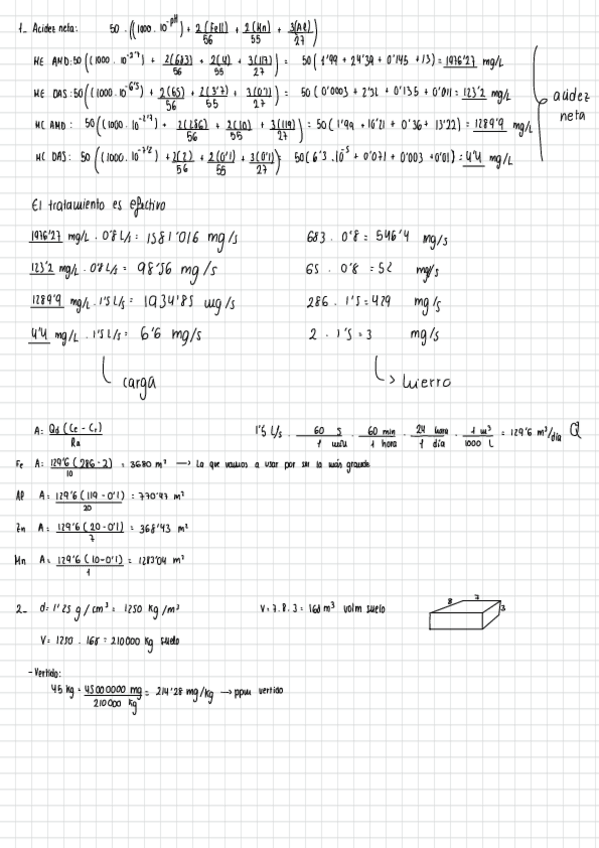 1- Acidez neta: 50 · ((1000 · 10^-pH) + 2(FeII)/56 + 2(Mn)/55 + 3(Al)/27)
ME AND: 50((1000 · 10^-2'7) + 2(683)/56 + 2(4)/55 + 3(117)/27) = 50(1'99 + 24'39 + 0'145 + 13) = 1976'27 mg/L
ME DAS: 50((1000 · 10^-6'5) + 2(65)/56 + 2(3'7)/55 + 3(0'1)/27) = 50(0'0003 + 2'32 + 0'135 + 0'011 = 123'2 mg/L
MC AMD: 50((1000 · 10^-2'7) + 2(286)/56 + 2(10)/55 + 3(119)/27) = 50(1'99 + 10'21 + 0'36 + 13'22) = 1289'9 mg/L
MC DAS: 50((1000 · 10^-7'2) + 2(2)/56 + 2(0'1)/55 + 3(0'1)/27) 50(6'3 · 10^-5 + 0'071 + 0'003 + 0'01) = 4'4 mg/L
acidez neta
El tratamiento es efectivo
1976'27 mg/L · 0'8 L/s = 1581'016 mg/s
123'2 mg/L · 0'8 L/s = 98'56 mg/s
1289'9 mg/L · 1'5 L/s = 1934'85 mg/s
4'4 mg/L · 1'5 L/s = 6'6 mg/s
carga
683 · 0'8 = 546'4 mg/s
65 · 0'8 = 52 mg/s
286 · 1'5 = 429 mg/s
2 · 1'5 = 3 mg/s
hierro
A = Qd (Ce - Cs)/Ra
1'5 L/s · 60 s/1 min · 60 min/1 hora · 24 hora/1 día · 1 m³/1000 L = 129'6 m³/día Q
Fe A = 129'6(286 - 2)/10 = 3680 m² → La que vamos a usar por ser la más grande
Al A = 129'6(119 - 0'1)/20 = 770'47 m²
Zn A = 129'6(20 - 0'1)/7 = 368'43 m²
Mn A = 129'6(10 - 0'1)/1 = 1283'04 m²
2- d = 1'25 g/cm³ = 1250 kg/m³
V = 7 · 8 · 3 = 168 m³ volm suelo
8 7 3
V = 1250 · 168 = 210000 kg suelo
- Vertido:
45 kg = 45000000 mg/210000 kg = 214'28 mg/kg → ppm vertido